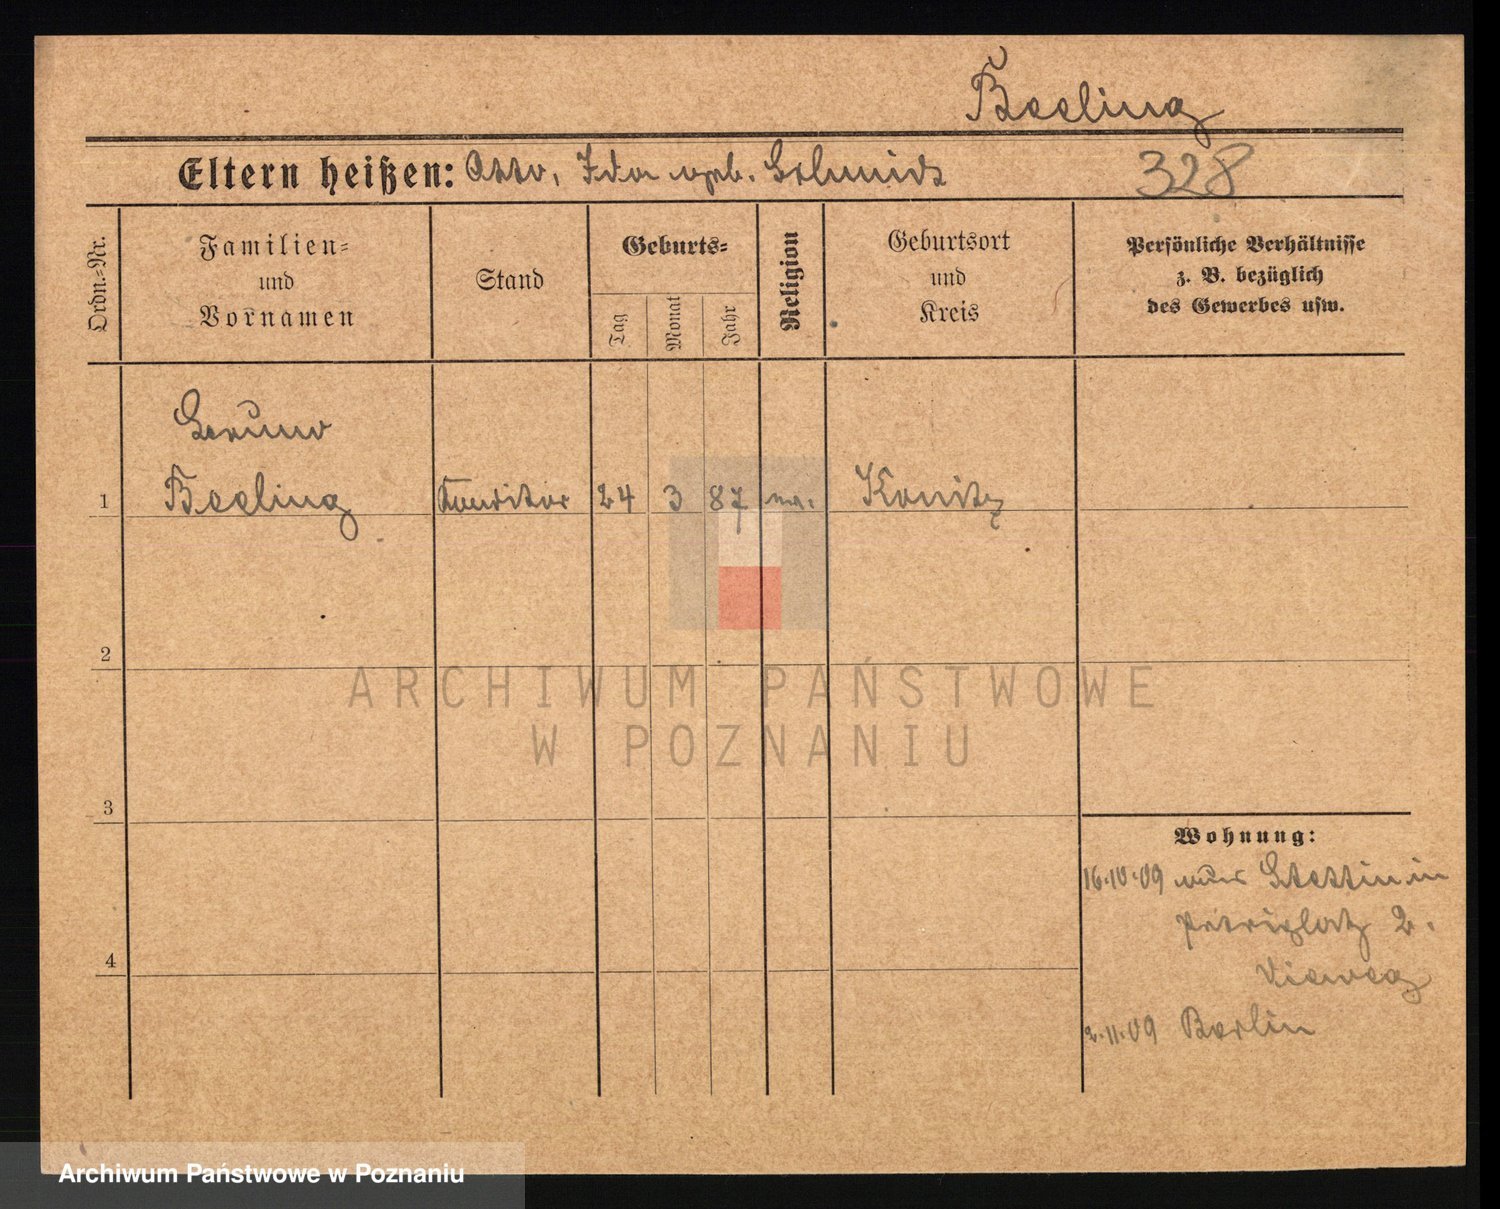 Beeling
Eltern heißen: Otto, Ida geb. Schmidt
328
Ordn.-Nr.
Familien-
und
Vornamen
Stand
Geburts-
Tag
Monat
Jahr
Religion
Geburtsort
und
Kreis
Persönliche Verhältnisse
z. B. bezüglich
des Gewerbes usw.
1
Bruno
Beeling
Konditor
24
3
87
ev.
Konitz
2
3
4
ARCHIWUM PAŃSTWOWE
W POZNANIU
Wohnung:
16.10.09 aus Stettin in
Petriplatz 2.
Vieweg
2.11.09 Berlin
Archiwum Państwowe w Poznaniu